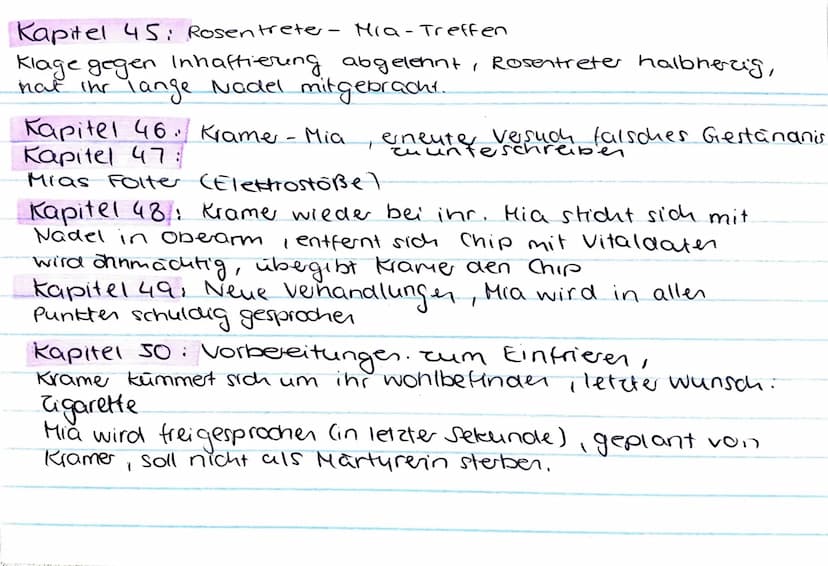 Kapitel 45: Rosentreter - Mia - Treffen
Klage gegen Inhaftierung abgelehnt, Rosentreter halbherzig,
hat ihr lange Nadel mitgebracht.
Kapitel 46: Kramer - Mia, erneuter Versuch falsches Geständnis
zu unterschreiben
Kapitel 47:
Mias Folter (Elektrostöße)
Kapitel 48: Kramer wieder bei ihr. Mia sticht sich mit
Nadel in Oberarm, entfernt sich Chip mit Vitaldaten
wird ohnmächtig, übergibt Kramer den Chip
Kapitel 49: Neue Verhandlungen, Mia wird in allen
Punkten schuldig gesprochen
Kapitel 50: Vorbereitungen zum Einfrieren,
Kramer kümmert sich um ihr wohlbefinden, letzter Wunsch:
Zigarette
Mia wird freigesprochen (in letzter Sekunde), geplant von
Kramer, soll nicht als Märtyrerin sterben.